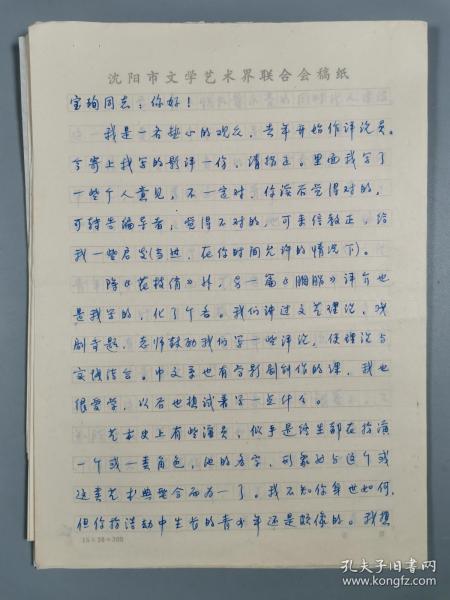 沈阳市文学艺术界联合会稿纸
宝珣同志:你好!
我是一名热心的观众,去年开始作评论员。
今寄上我写的影评一份,请指正。里面我写了
一些个人意见,不一定对,你读后觉得对的,
可转告编导者,觉得不对的,可来信教正,给
我一些启发(当然,在你时间允许的情况下)。
除《花枝俏》外,另一篇《胭脂》评介也
是我写的,化了个名。我们讲过文艺理论,戏
剧专题,老师鼓励我们写一些评论,使理论与
实践结合。中文系也有写影剧创作的课,我也
很爱学,以后也想试着写一点什么。
艺术史上有些演员,似乎是终生都在扮演
一个或一类角色,他的名字,形象好与这个或
这类艺术典型合而为一了。我不知你身世如何,
但你扮活动中生长的青少年还是颇像的。我想
15×20=300
孔夫子旧书网